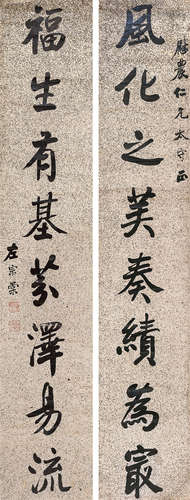 農仁兄太守正
風化之美奏績為冣
福生有基芬澤易流
左宗棠